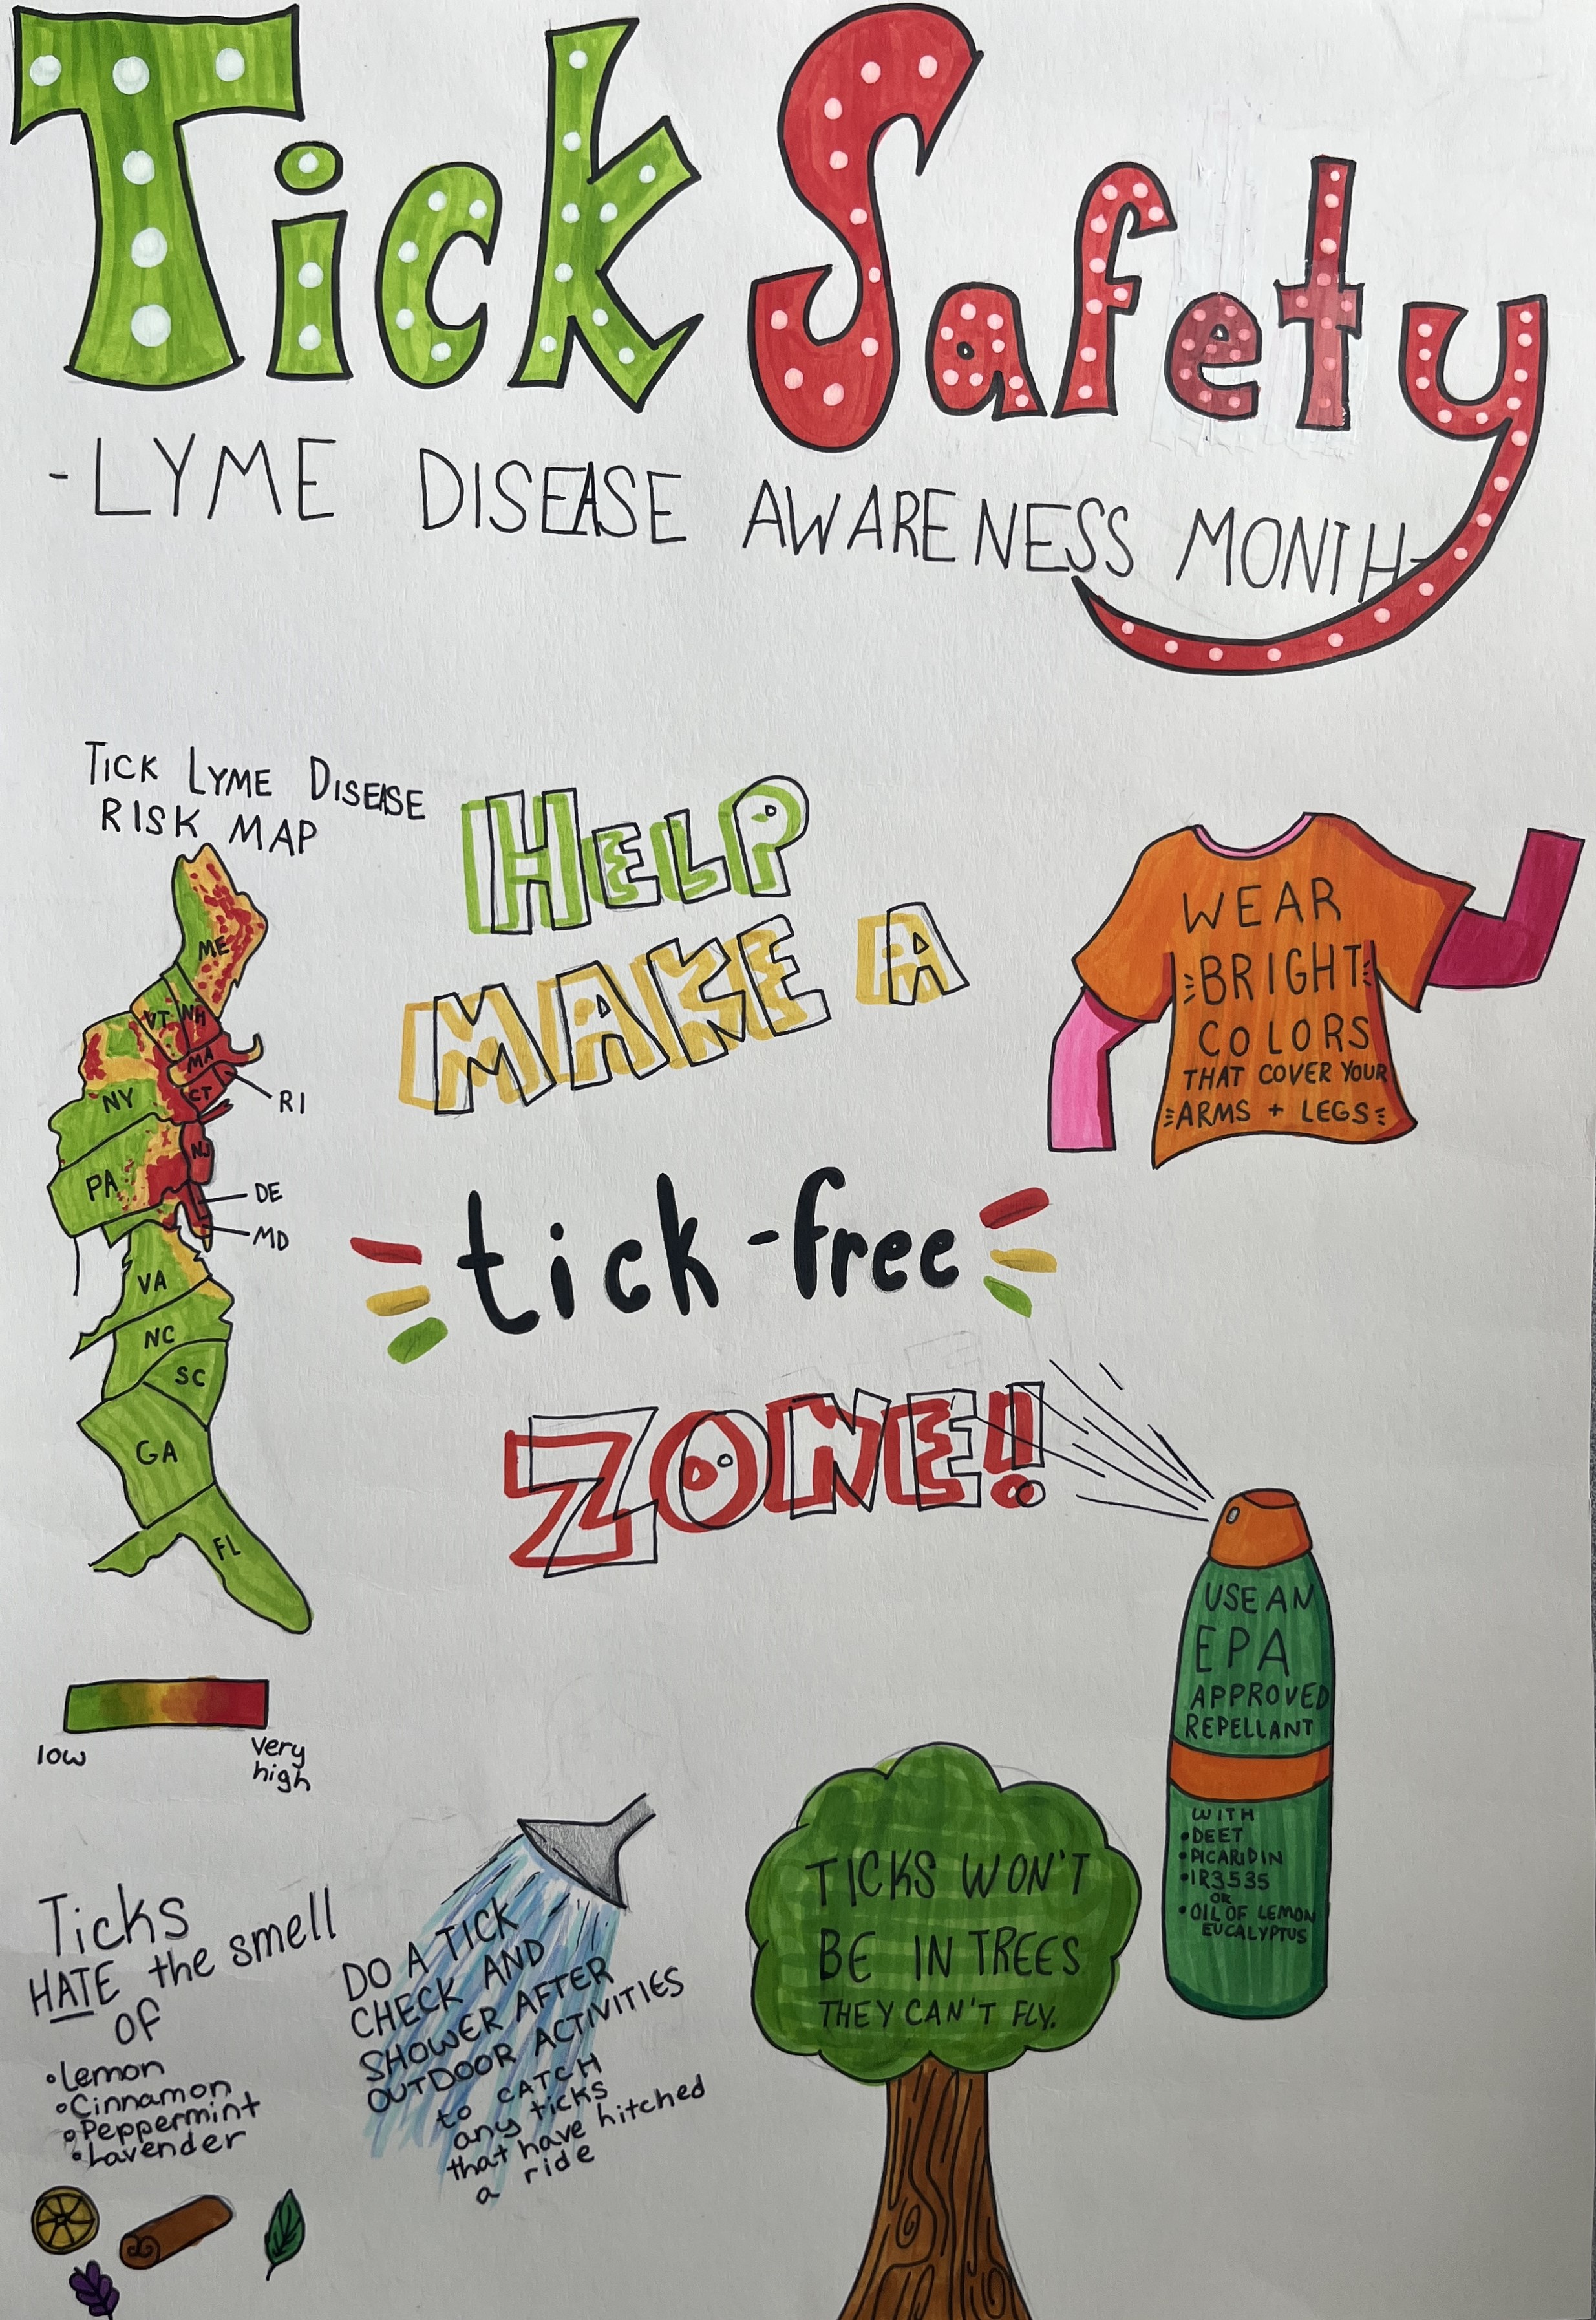 Tick Safety
-LYME DISEASE AWARENESS MONTH-
TICK LYME DISEASE
RISK MAP
ME
VT
NH
MA
CT
RI
NY
NJ
PA
DE
MD
VA
NC
SC
GA
FL
low
very
high
HELP
MAKE A
tick-free
ZONE!
WEAR
BRIGHT
COLORS
THAT COVER YOUR
ARMS + LEGS
USE AN
EPA
APPROVED
REPELLANT
WITH
•DEET
•PICARIDIN
•IR3535
OR
•OIL OF LEMON
EUCALYPTUS
Ticks
HATE the smell
OF
•Lemon
•Cinnamon
•Peppermint
•Lavender
DO A TICK
CHECK AND
SHOWER AFTER
OUTDOOR ACTIVITIES
to CATCH
any ticks
that have hitched
a ride
TICKS WON'T
BE IN TREES
THEY CAN'T FLY.